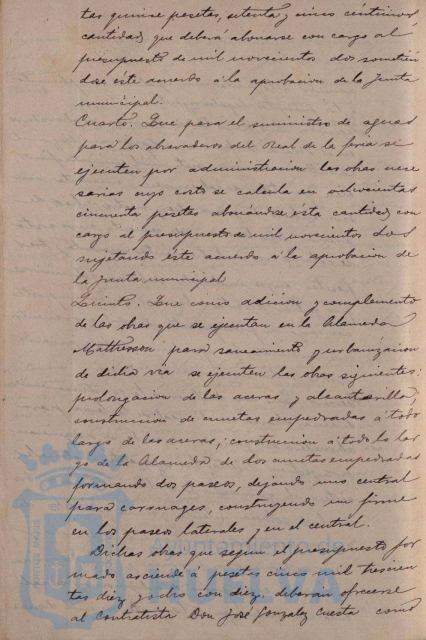 tas quinse pesetas, setenta y cinco céntimos
cantidad que deberá abonarse con cargo al
presupuesto de mil novecientos dos sometién
dose éste acuerdo á la aprobacion de la Junta
municipal.
Cuarto. Que para el suministro de aguas
para los abrevaderos del Real de la feria se
ejecuten por administracion las obras nece
sarias cuyo costo se calcula en ochocientas
cincuenta pesetas abonándose ésta cantidad con
cargo al presupuesto de mil novecientos dos
sujetando este acuerdo á la aprobacion de
la Junta municipal
Quinto. Que como adicion y complemento
de las obras que se ejecutan en la Alameda
Mathesson para saneamiento y urbanizacion
de dicha via se ejecuten las obras siguientes:
prolongacion de las aceras y alcantarilla,
construccion de cunetas empedradas á todo
largo de las aceras; construccion á todo lo lar
go de la Alameda de dos cunetas empedradas
formando dos paseos, dejando uno central
para carruages, construyendo un firme
en los paseos laterales y en el central.
Dichas obras que segun el presupuesto for
mado asciende á pesetas cinco mil trescien
tas diez y ocho con diez, deberan ofrecerse
al Contratista Don José Gonzalez Cuesta como
Ayuntamiento de
HUELVA